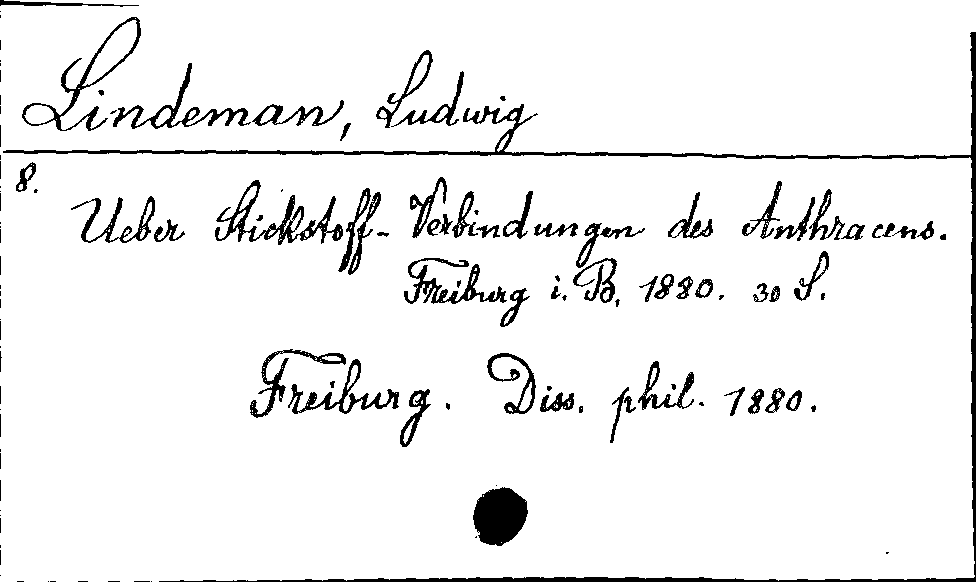 Lindeman, Ludwig
8.
Ueber Stickstoff-Verbindungen des Anthracens.
Freiburg i. B. 1880. 30 S.
Freiburg. Diss. phil. 1880.